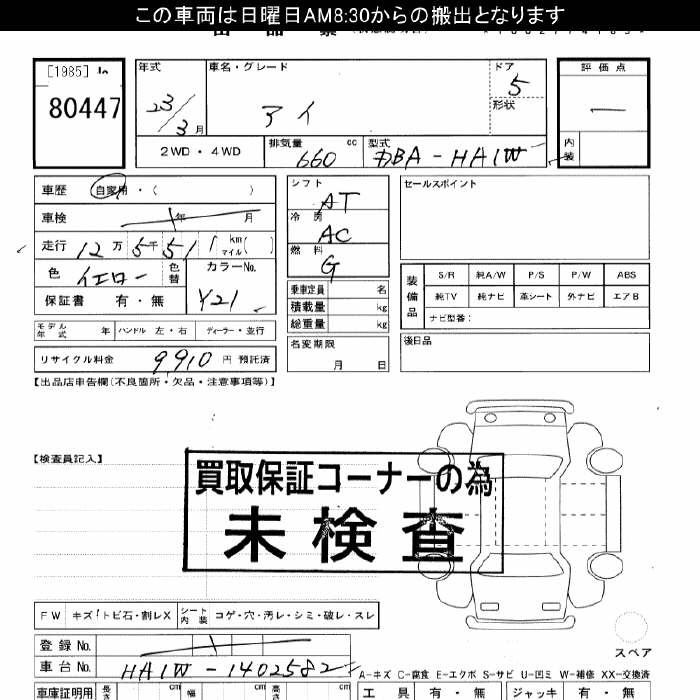 この車両は日曜日AM8:30からの搬出となります
[1985]
80447
年式
23/3月
車名・グレード
アイ
ドア
5
形状
評価点
内装
2WD・4WD
排気量
660
cc
型式
DBA-HA1W
車歴 自家用・( )
車検 年 月
走行 12万5千51 km マイル ( )
色 イエロー 色替
カラーNo.
Y21
保証書 有・無
シフト
AT
冷房
AC
燃料
G
乗車定員 名
積載量 kg
総重量 kg
名変期限
月 日
セールスポイント
装備品
S/R 純A/W P/S P/W ABS
純TV 純ナビ 革シート 外ナビ エアB
ナビ型番:
後日品
モデル年式 年 ハンドル 左・右 ディーラー・並行
リサイクル料金 9910 円 預託済
【出品店車告欄(不良箇所・欠品・注意事項等)】
【検査員記入】
買取保証コーナーの為
未検査
FW キズ!トビ石・割レX シート内装 コゲ・穴・汚レ・シミ・破レ・スレ
登録No.
車台No. HA1W-1402582
スペア
A-キズ C-腐食 E-エクボ S-サビ U-凹ミ W-補修 XX-交換済
車庫証明用 長さ cm 幅 cm 高さ cm
工具 有・無 ジャッキ 有・無